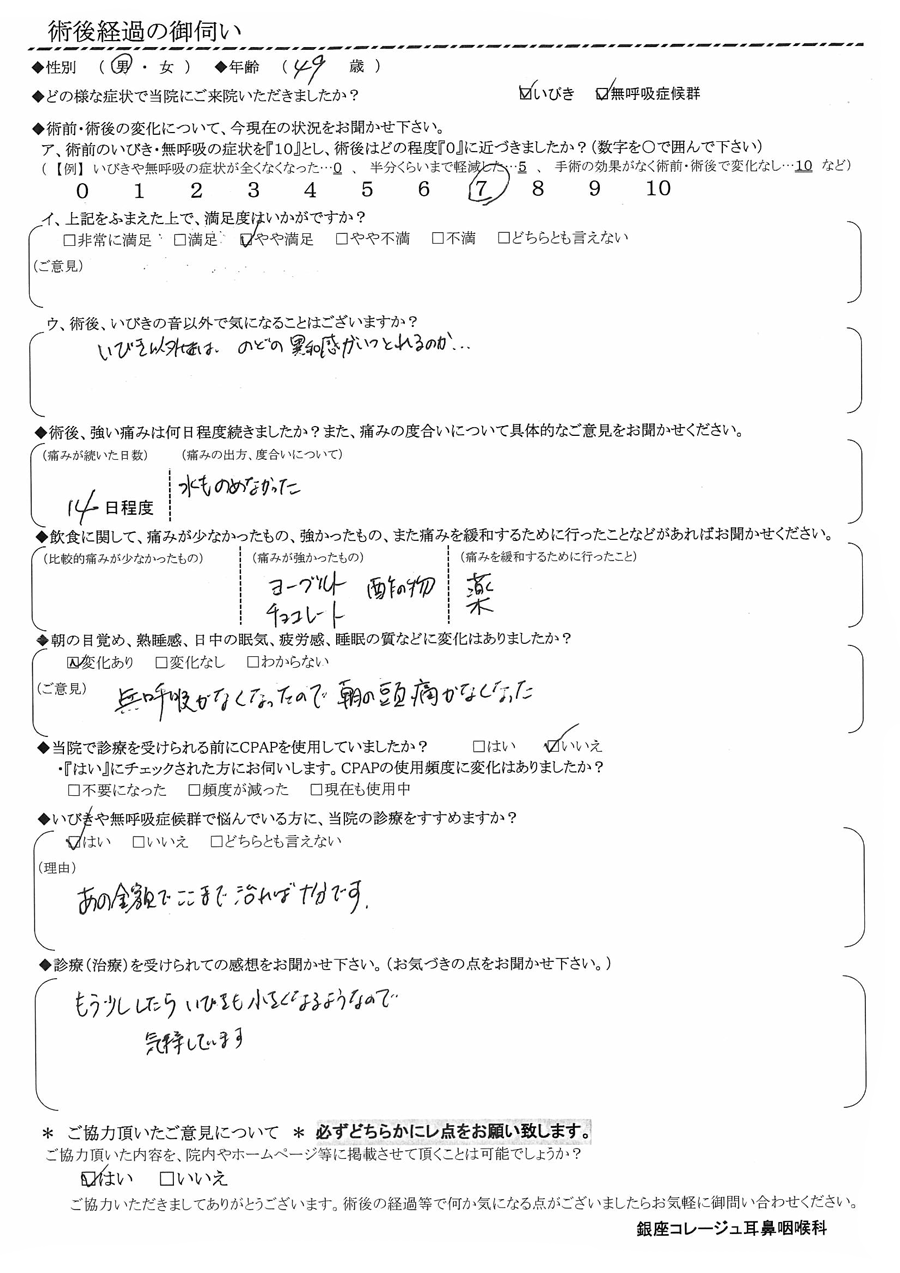 術後経過の御伺い
◆性別 （ 男 ・ 女 ） ◆年齢 （ 49 歳 ）
◆どの様な症状で当院にご来院いただきましたか？ ☑いびき ☑無呼吸症候群
◆術前・術後の変化について、今現在の状況をお聞かせ下さい。
ア、術前のいびき・無呼吸の症状を『10』とし、術後はどの程度『0』に近づきましたか？（数字を○で囲んで下さい）
（【例】いびきや無呼吸の症状が全くなくなった…0 、 半分くらいまで軽減した…5 、 手術の効果がなく術前・術後で変化なし…10 など）
0 1 2 3 4 5 6 7 8 9 10
イ、上記をふまえた上で、満足度はいかがですか？
□非常に満足 □満足 ☑やや満足 □やや不満 □不満 □どちらとも言えない
（ご意見）
ウ、術後、いびきの音以外で気になることはございますか？
いびき以外では、のどの異和感がいつとれるのか…
◆術後、強い痛みは何日程度続きましたか？また、痛みの度合いについて具体的なご意見をお聞かせください。
（痛みが続いた日数） （痛みの出方、度合いについて）
14日程度 水ものめなかった
◆飲食に関して、痛みが少なかったもの、強かったもの、また痛みを緩和するために行ったことなどがあればお聞かせください。
（比較的痛みが少なかったもの） （痛みが強かったもの） （痛みを緩和するために行ったこと）
ヨーグルト 酢の物 薬
チョコレート
◆朝の目覚め、熟睡感、日中の眠気、疲労感、睡眠の質などに変化はありましたか？
☑変化あり □変化なし □わからない
（ご意見） 無呼吸がなくなったので朝の頭痛がなくなった
◆当院で診療を受けられる前にCPAPを使用していましたか？ □はい ☑いいえ
・『はい』にチェックされた方にお伺いします。CPAPの使用頻度に変化はありましたか？
□不要になった □頻度が減った □現在も使用中
◆いびきや無呼吸症候群で悩んでいる方に、当院の診療をすすめますか？
☑はい □いいえ □どちらとも言えない
（理由）
あの金額でここまで治れば十分です。
◆診療（治療）を受けられての感想をお聞かせ下さい。（お気づきの点をお聞かせ下さい。）
もう少ししたらいびきも小さくなるようなので
気持しています
＊ ご協力頂いたご意見について ＊ 必ずどちらかにレ点をお願い致します。
ご協力頂いた内容を、院内やホームページ等に掲載させて頂くことは可能でしょうか？
☑はい □いいえ
ご協力いただきましてありがとうございます。術後の経過等で何か気になる点がございましたらお気軽に御問い合わせください。
銀座コレージュ耳鼻咽喉科